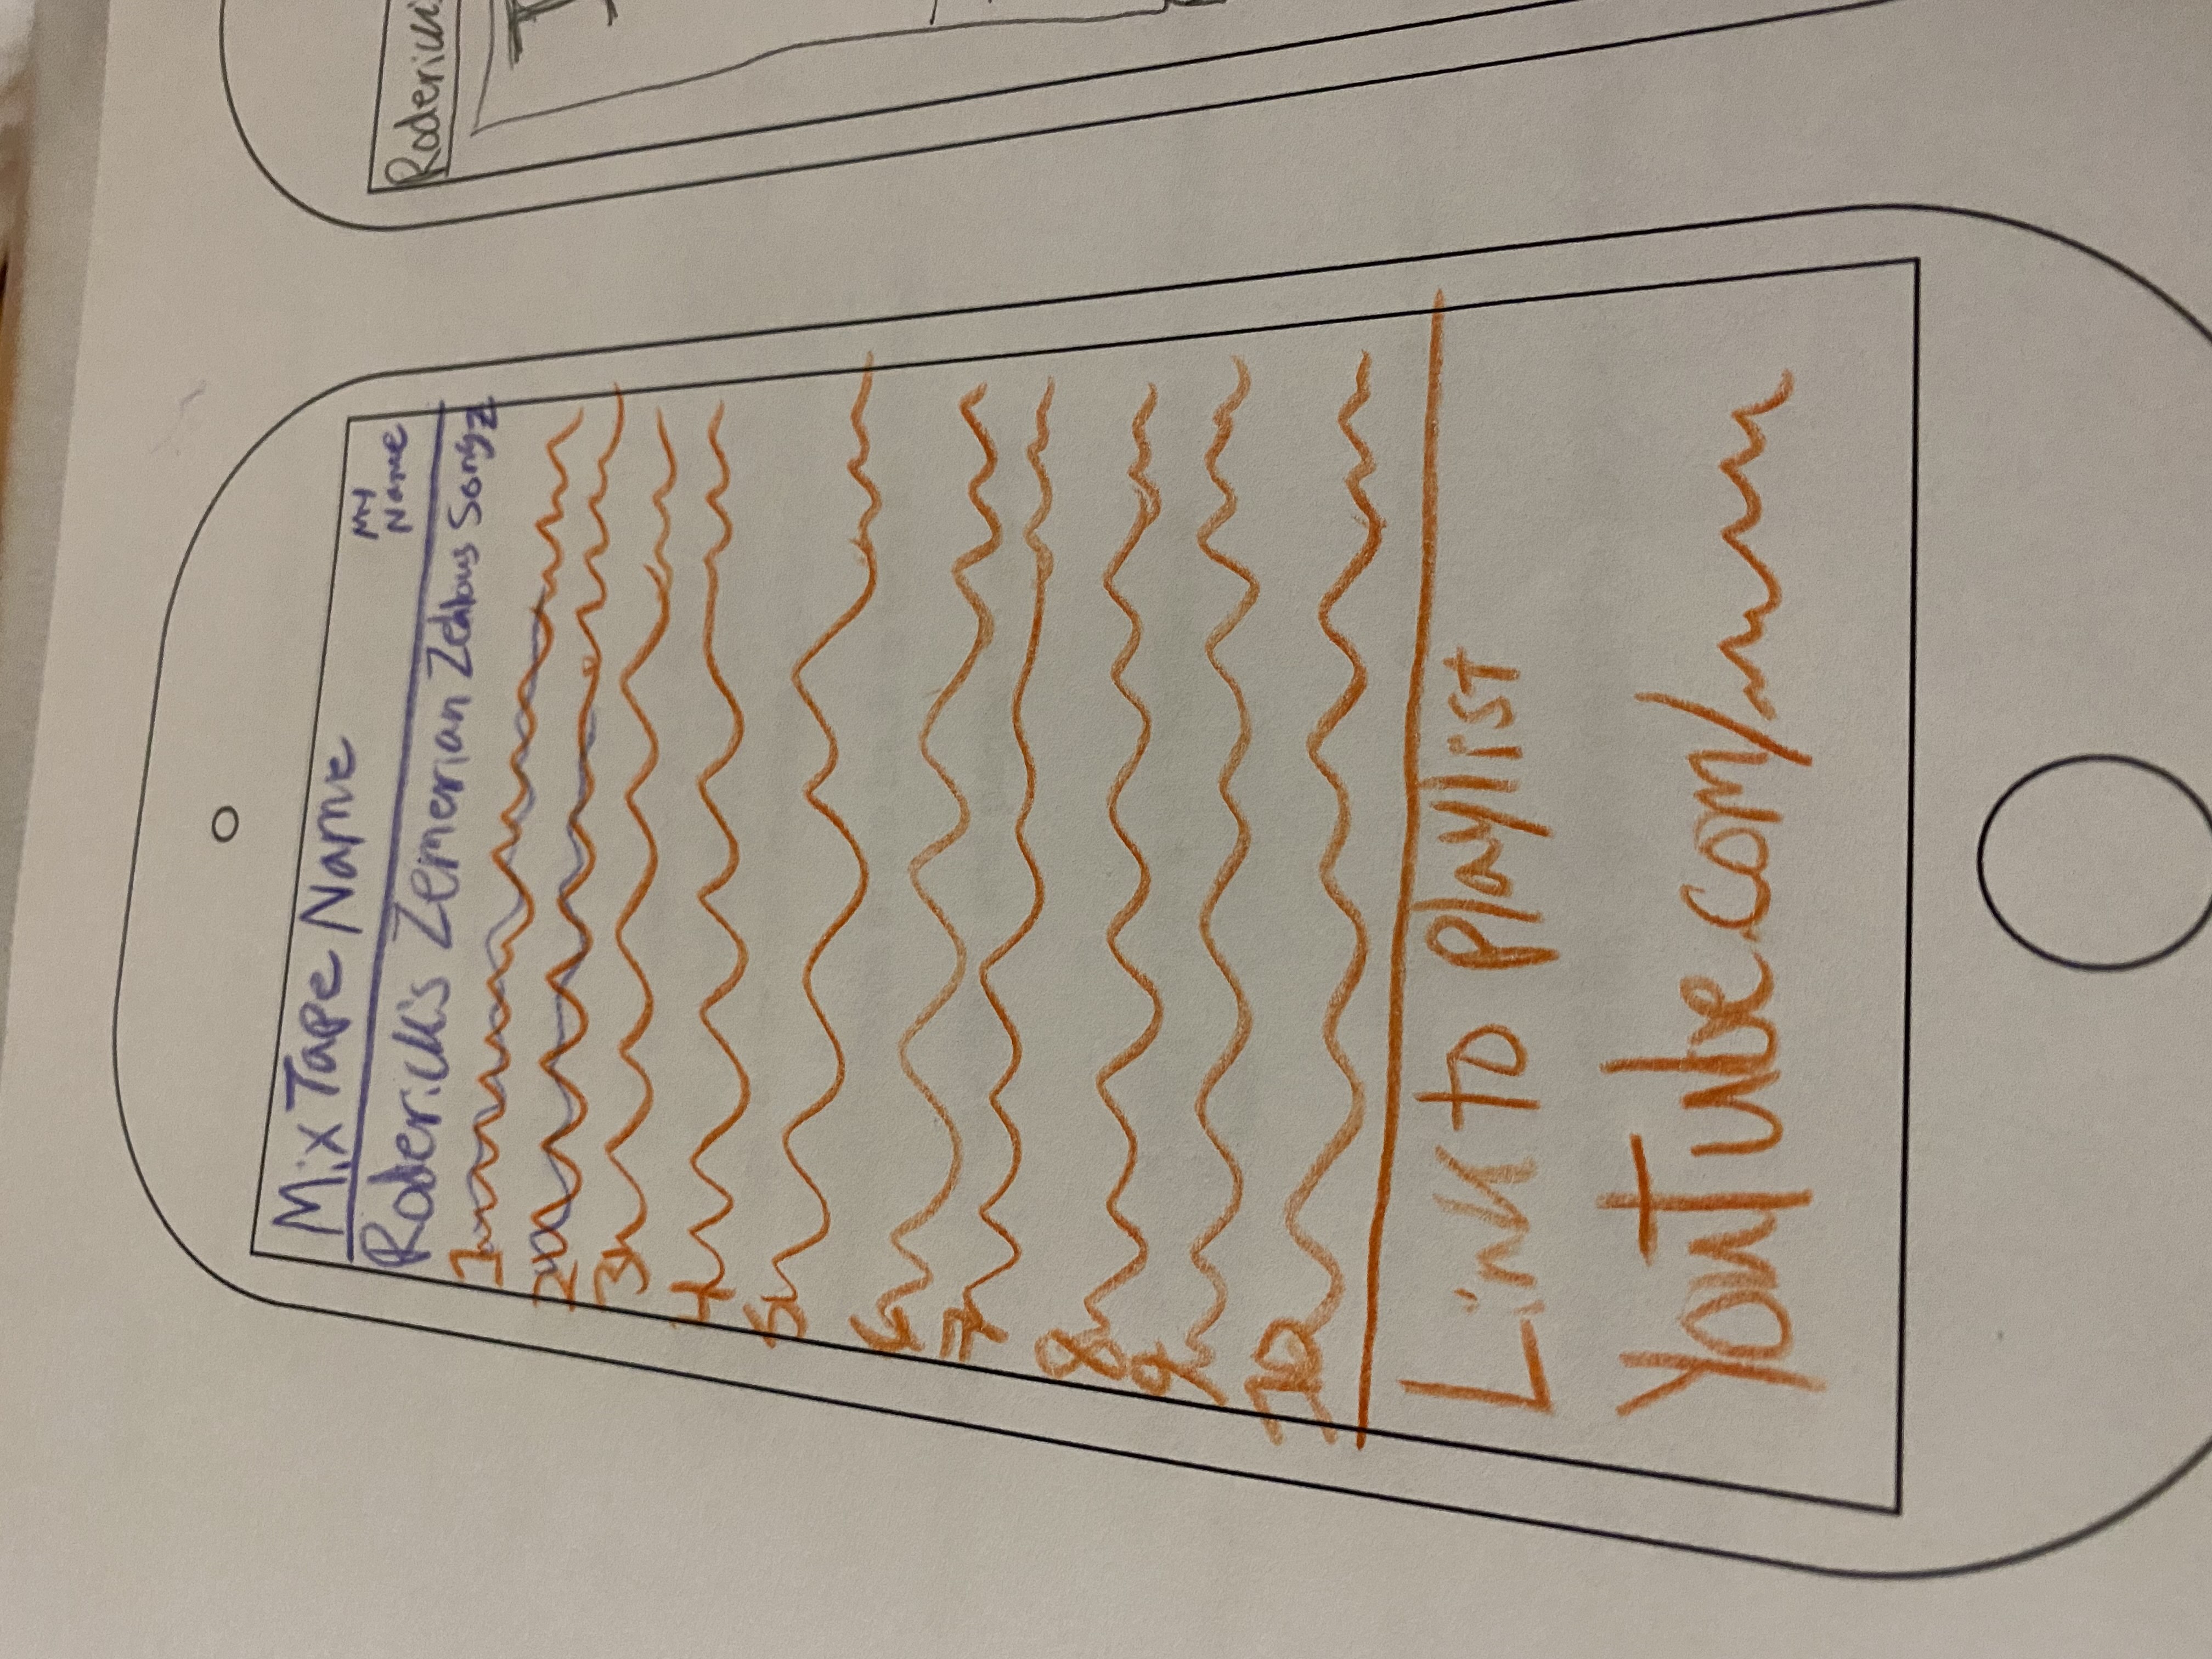 Mix Tape Name
My
Name
Roderick's Zemerian Zealous Songz
1
2
3
4
5
6
7
8
9
10
Link to playlist
YouTube.com/
Roderick's